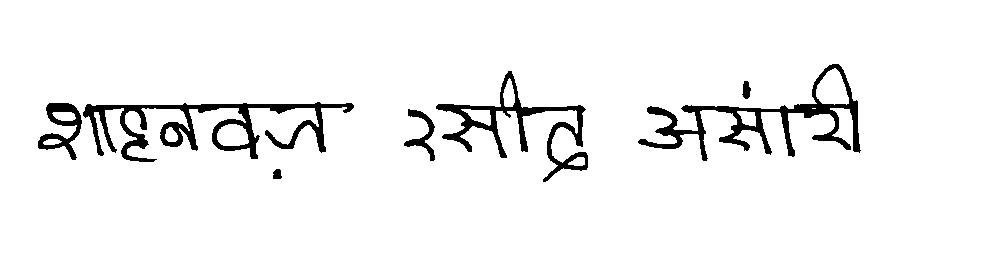 शाहनवज़ रसीद असांरी